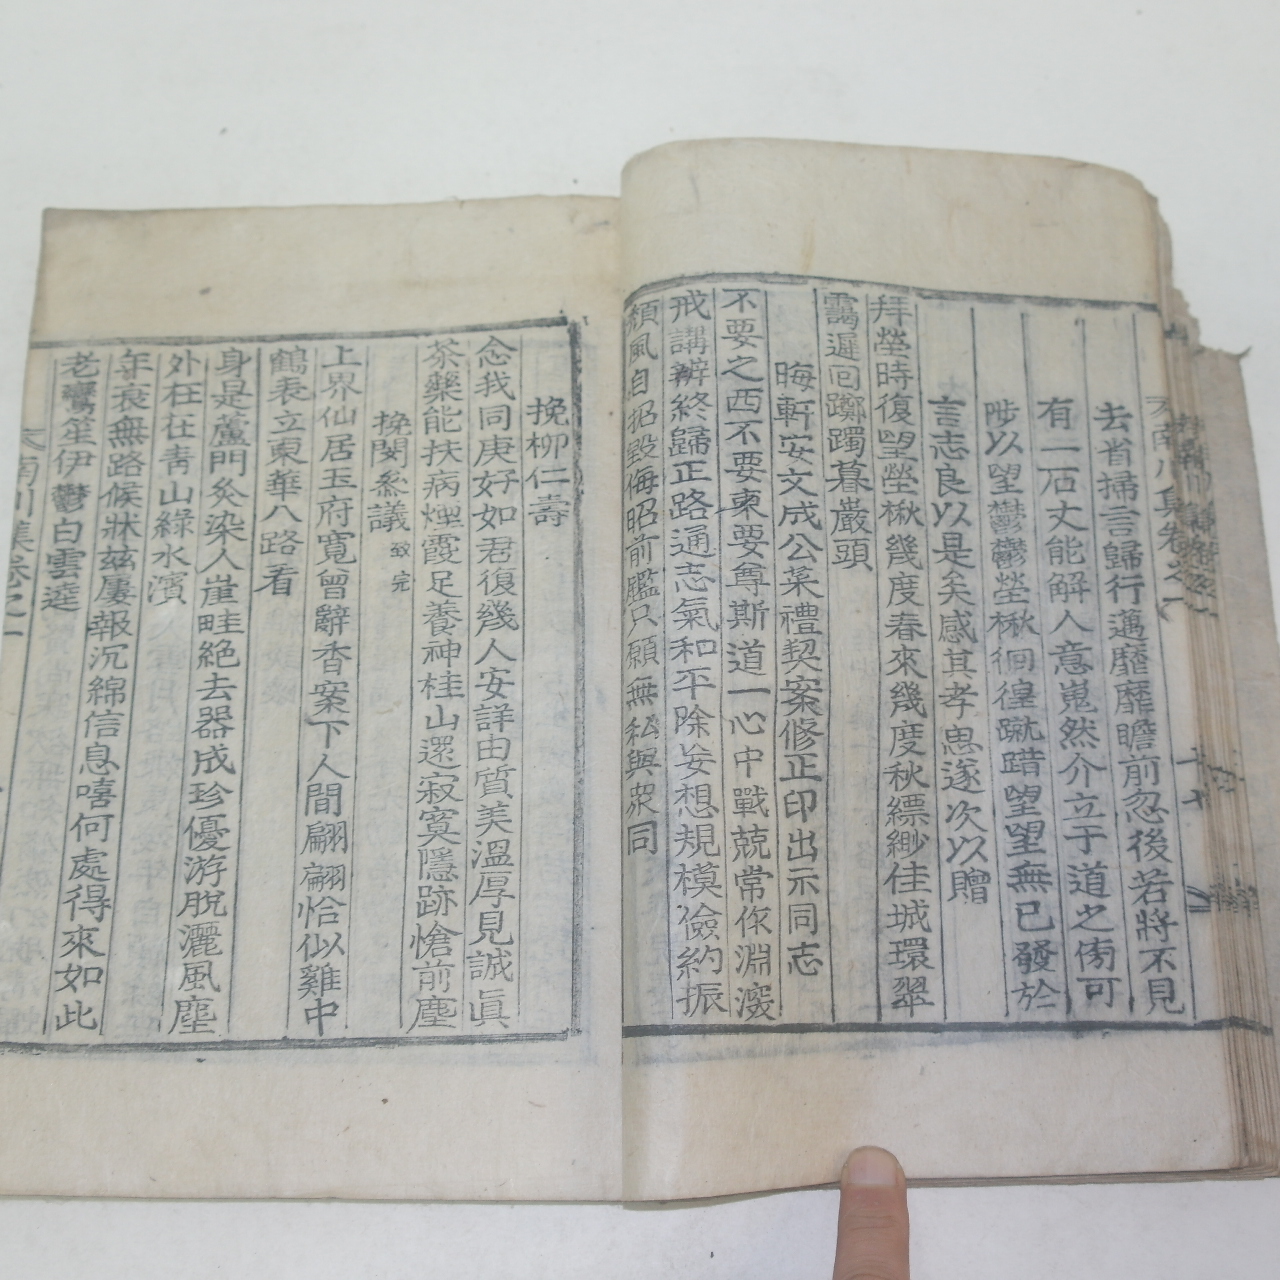 去省掃言歸行邁靡靡瞻前忽後若將不見
有一石丈能解人意嵬然介立于道之傍可
陟以望鬱鬱塋楸徊徨蹴踖望望無已發於
言志良以是矣感其孝思遂次以贈
拜塋時復望塋楸幾度春來幾度秋縹緲佳城環翠
靄遲回躑躅暮巖頭
晦軒安文成公菜禮契案修正印出示同志
不要之西不要東要尊斯道一心中戰兢常作淵深
戒講辨終歸正路通志氣和平除妄想規模儉約振
頹風自招毀侮昭前鑑只願無私與衆同
挽柳仁壽
念我同庚好如君復幾人安詳由質美溫厚見誠眞
茶藥能扶病煙霞足養神桂山還寂寞隱跡愴前塵
挽閔參議致完
上界仙居玉府寬曾辭香案下人間翩翩恰似雞中
鶴表立東華八路看
身是蘆門灸染人崖畦絶去器成珍優游脫灑風塵
外枉在靑山綠水濱
年衰無路候牀玆屢報沉綿信息嘻何處得來如此
老鸞笙伊鬱白雲邊